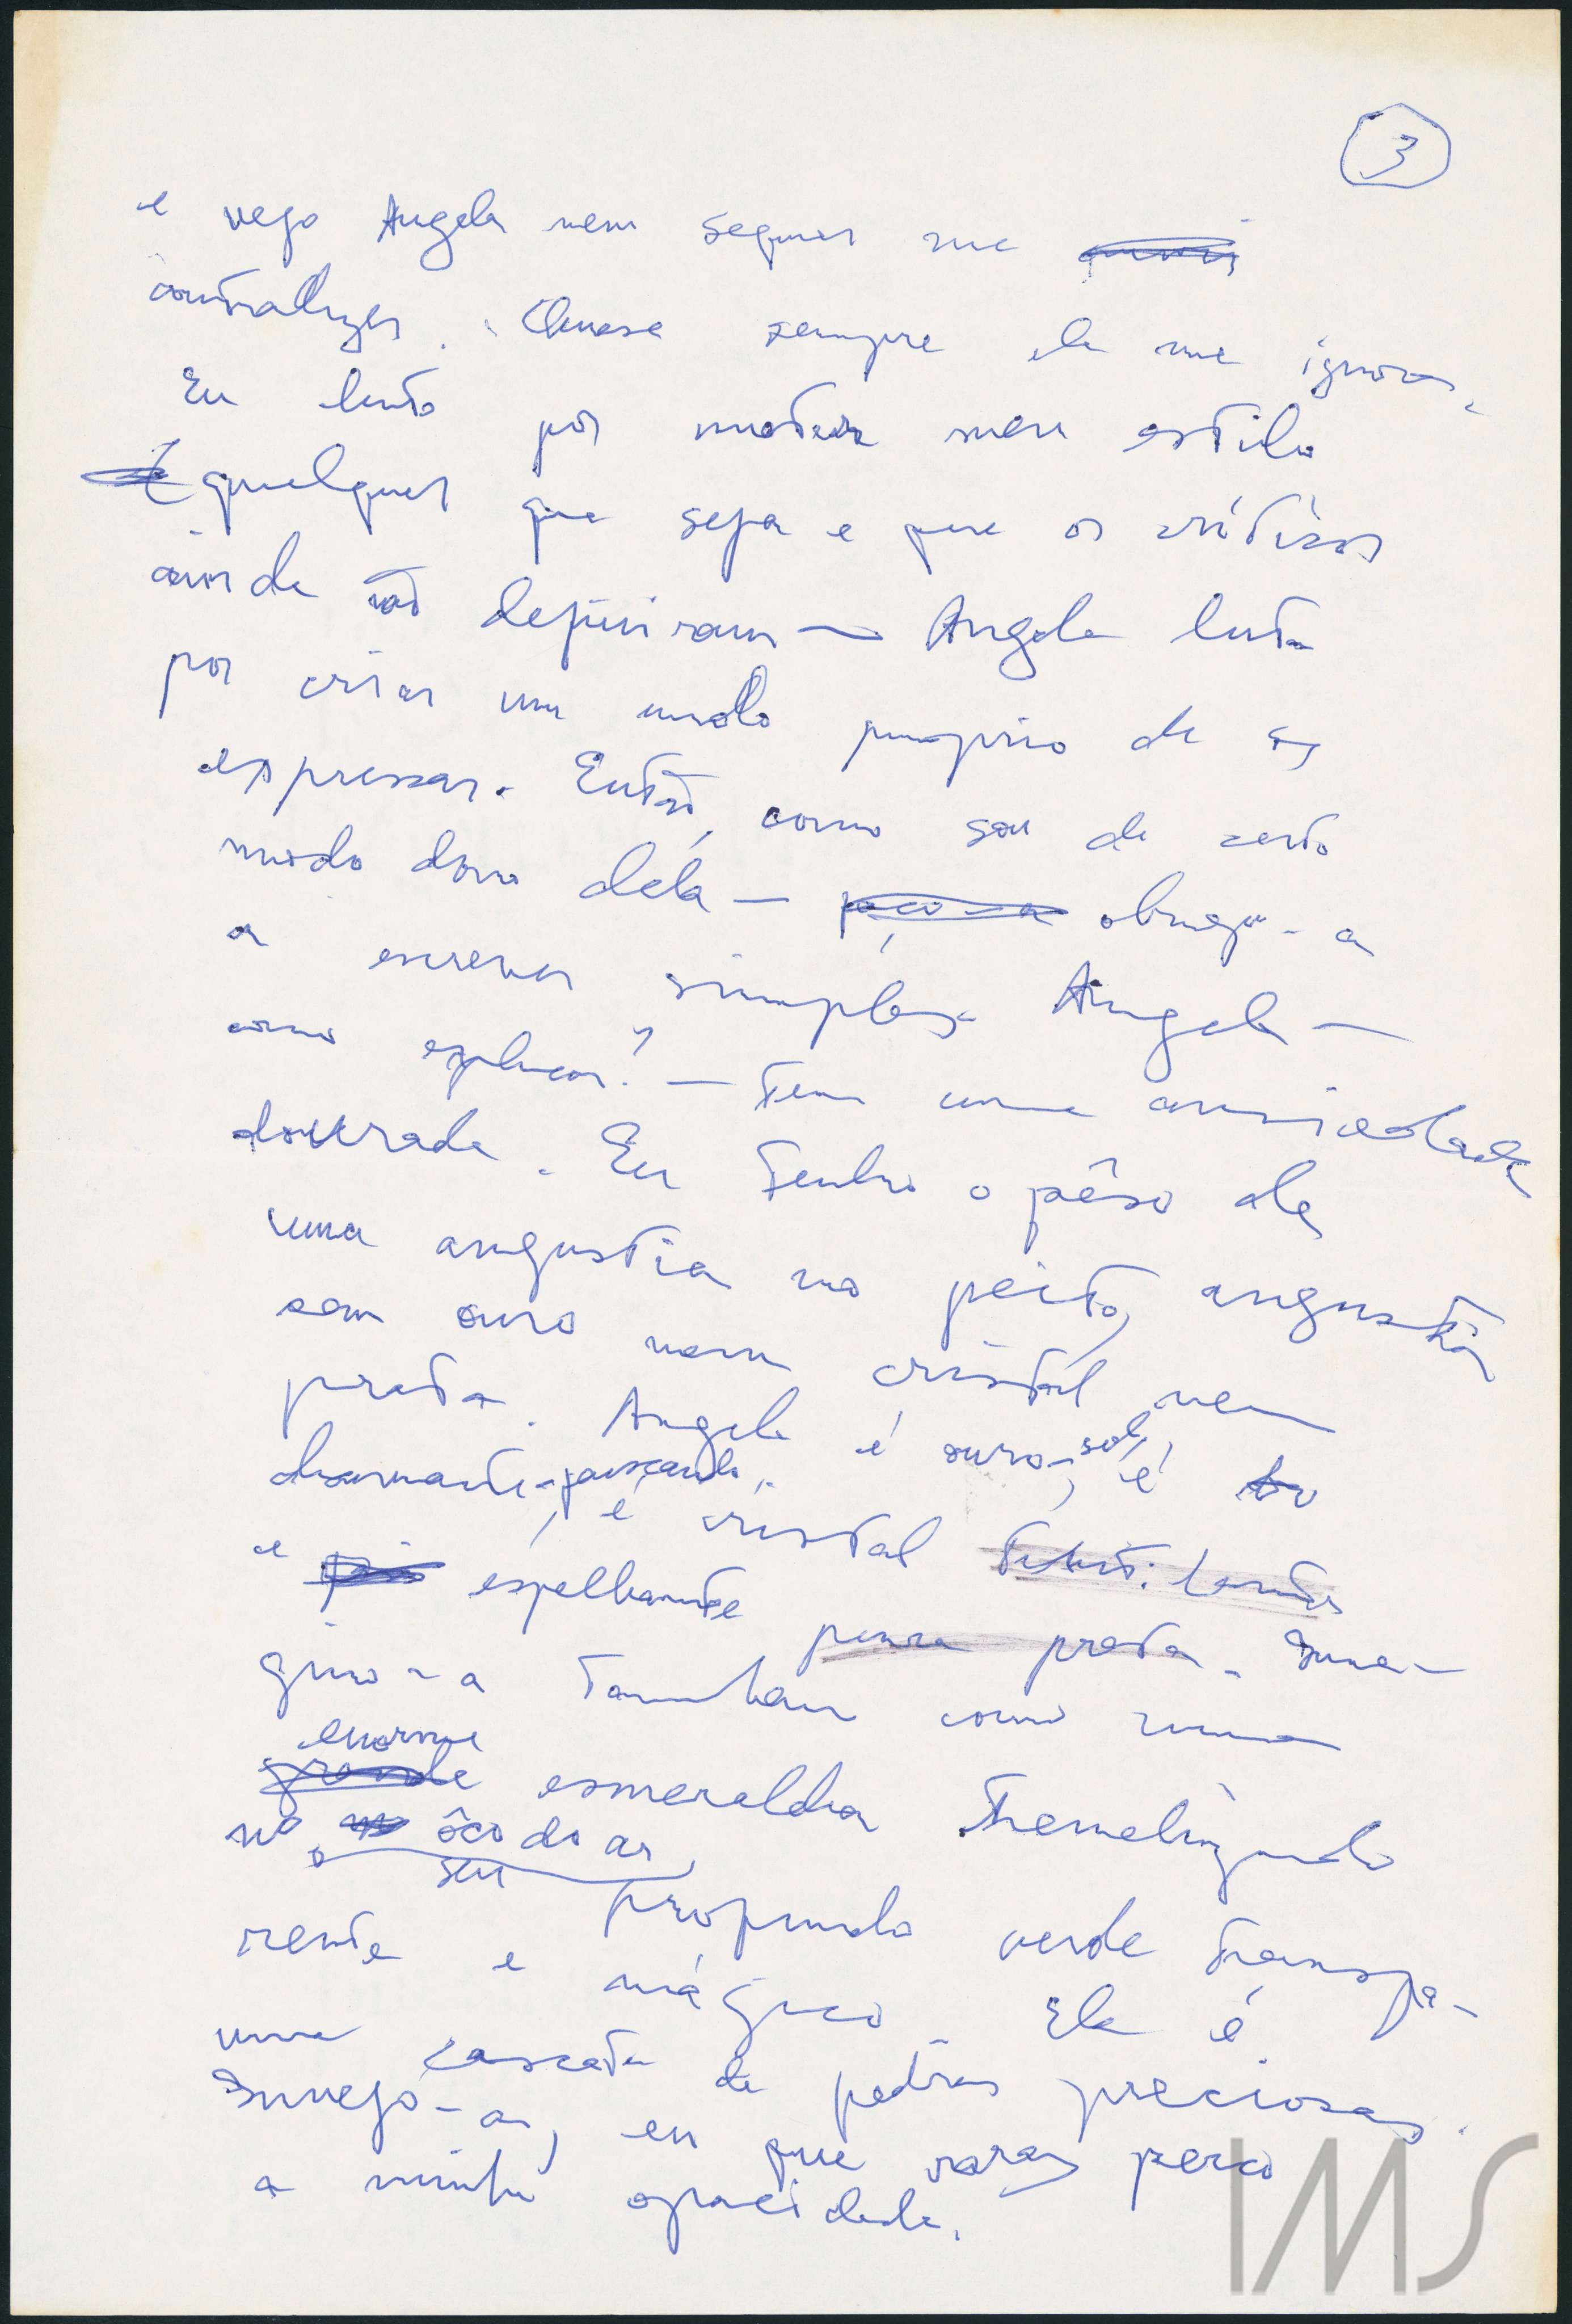 3
e vejo Angela nem sequer me
contradizer. Quase sempre ela me ignora.
Eu luto por matar meu estilo
qualquer que seja e que os críticos
ainda não definiram — Angela luta
por criar um modo proprio de se
expressar. Então, como sou de certo
modo dono dela — faço-a obrigo-a
a escrever simples. Angela —
como explicar? — tem uma ansiedade
dourada. Eu tenho o pêso de
uma angustia no peito, angustia
sem ouro nem cristal nem
prata. Angela é ouro-sol, é
diamante-faiscando, é cristal
e espelhante pura prata. Ima-
gino-a tambem como uma
enorme
grande esmeralda tremeluzindo
no ôco do ar
seu profundo verde transpa-
rente e mágico. Ela é
uma cascata de pedras preciosas.
Invejo-a, eu que
a minha opacidade.
IMS